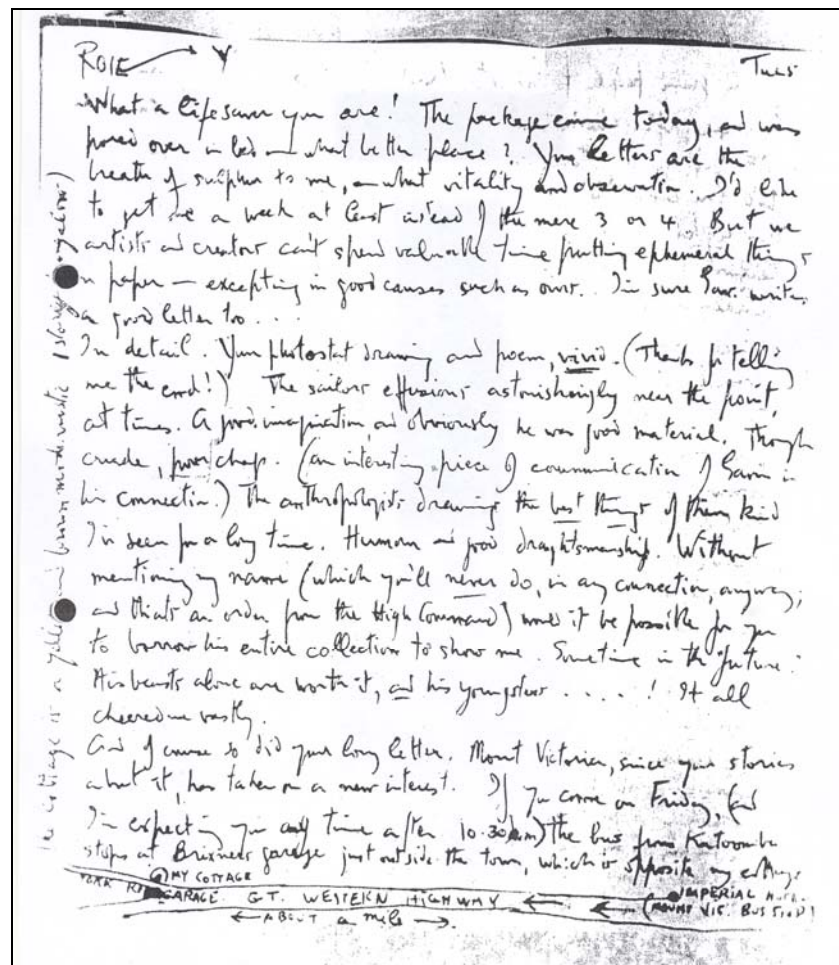 ROIE Tues
What a lifesaver you are! The package came today, and was
pored over in bed — what better place? Your letters are the
breath of sulphur to me, — what vitality and observation. I'd like
to get one a week at least instead of the mere 3 or 4. But we
artists and creators can't spend valuable time putting ephemeral things
on paper — excepting in good causes such as ours. I'm sure writes
a good letter too...
In detail. Your photostat drawing and poem, vivid. (Thanks for telling
me the end!) The sailor's effusions astonishingly near the point,
at times. A good imagination, and obviously he was good material, though
crude, poor chap. (an interesting piece of communication of in
his connection.) The anthropologist's drawings the best things of their kind
I've seen for a long time. Humour and good draughtsmanship. Without
mentioning my name (which you'll never do, in any connection, anyway;
and that's an order from the High Command) would it be possible for you
to borrow his entire collection to show me. Sometime in the future.
His beasts alone are worth it, and his youngsters . . . . ! It all
cheered me vastly.
And of course so did your long letter. Mount Victoria, since your stories
about it, has taken on a new interest. If you come on Friday, (and
I'm expecting you any time after 10.30am) the bus from Katoomba
stops at garage just outside the town, which is opposite my cottage
MY COTTAGE
GARAGE. GT. WESTERN HIGHWAY
IMPERIAL
(MOUNT VIC. BUS STOP)
ABOUT a mile
The cottage is a and brown